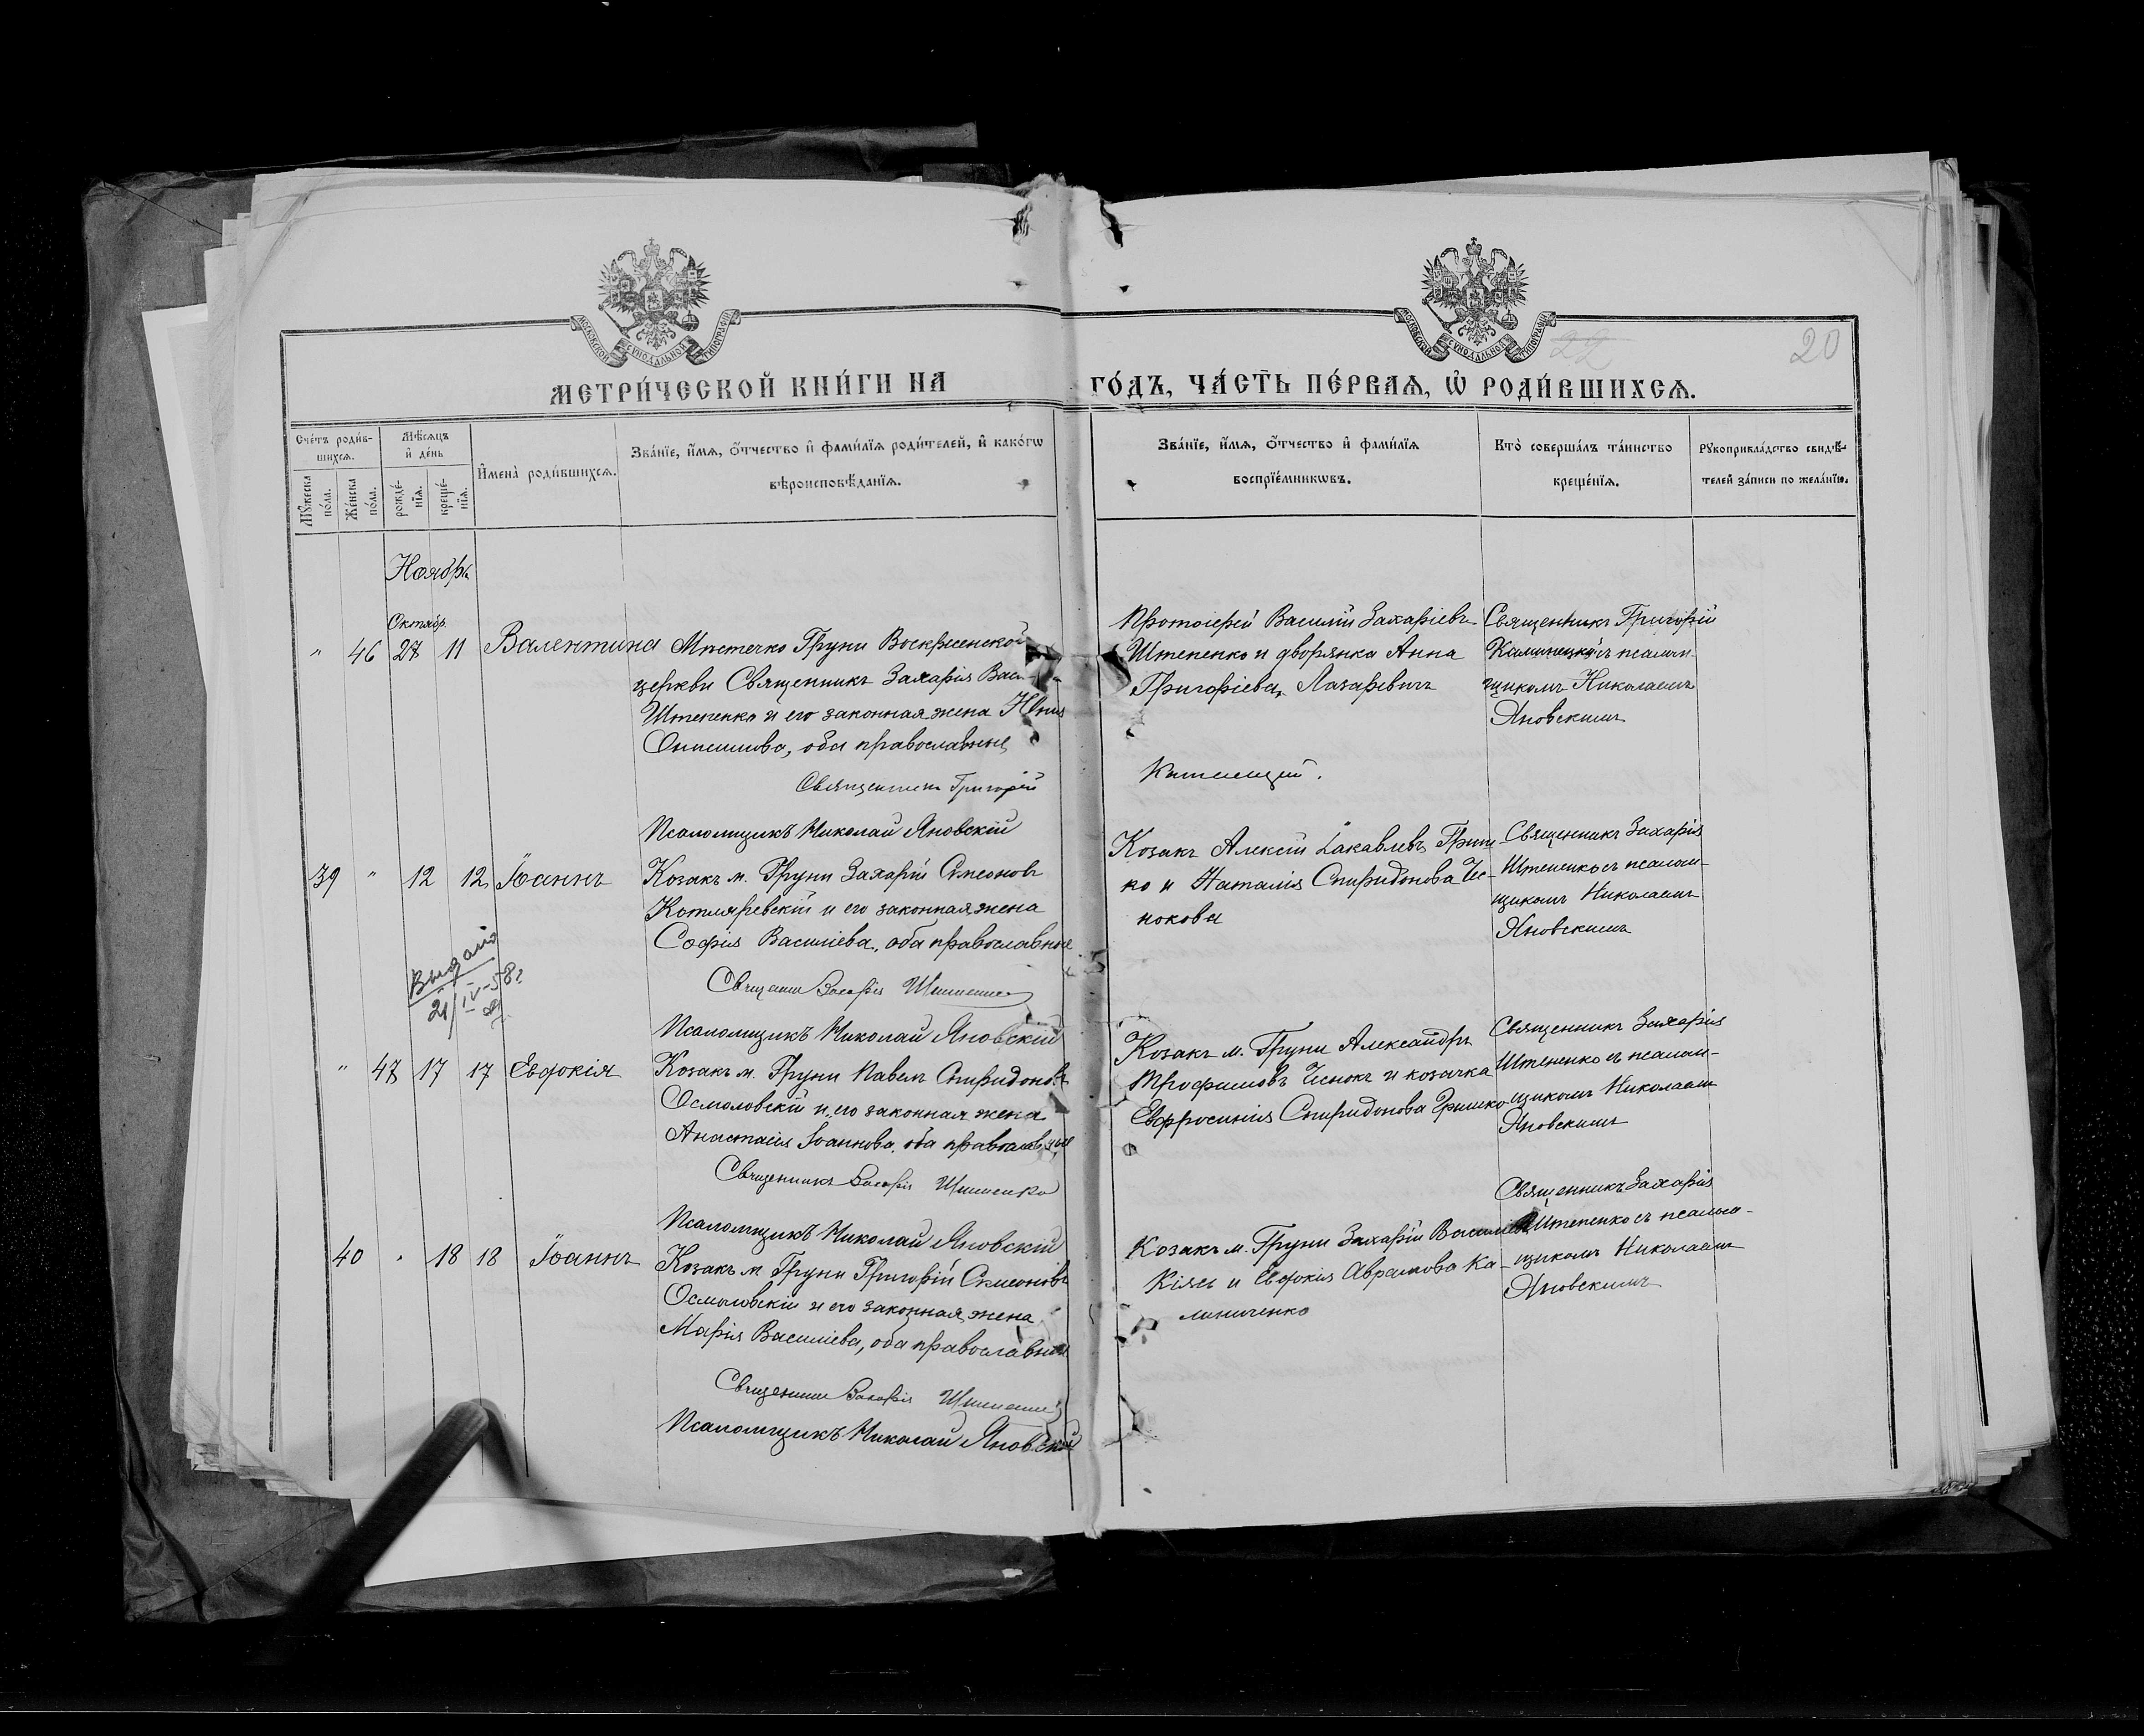 МОСКОВСКОЙ СѴНОДАЛЬНОЙ ТИПОГРАФІИ
МОСКОВСКОЙ СѴНОДАЛЬНОЙ ТИПОГРАФІИ
22
20
МЕТРИ́ЧЕСКОЙ КНИ́ГИ НА ГО́ДЪ, ЧА́СТЬ ПЕ́РВАѦ, Ѡ҆ РОДИ́ВШИХСѦ.
Сче́тъ роди́в-
шихсѧ.
Мꙋ́жеска по́ла.
Же́нска по́ла.
Мѣ́сѧцъ
и҆ де́нь
рожде́-
нїѧ.
креще́-
нїѧ.
И҆мена̀ роди́вшихсѧ.
Зва́нїе, и҆́мѧ, ѻ҆́тчество и҆ фами́лїѧ роди́телей, и҆ како́гѡ
вѣроисповѣ́данїѧ.
Зва́нїе, и҆́мѧ, ѻ҆́тчество и҆ фами́лїѧ
воспрїе́мникѡвъ.
Кто̀ соверша́лъ та́инство
креще́нїѧ.
Рꙋкоприкла́дство свидѣ́-
телей за́писи по жела́нїю.
Ноябрь
Октябр.
" 46 27 11 Валентина
Мѣстечко Груни Воскресенской
церкви Священникъ Захарія Васи
Штепенко и его законная жена
оба православные
Священникъ Григорій
Псаломщикъ Николай Яновскій
Протоіерей Василій Захаріевъ
Штепенко и дворянка Анна
Григоріева Лазаревичъ
Священникъ Григорій
съ псалом-
щикомъ Николаемъ
Яновскимъ
39 " 12 12 Іоаннъ
Козакъ м. Груни Захарій Симеоновъ
Котляревскій и его законная жена
Софія Василіева, оба православные
Священникъ Захарія Штепенко
Псаломщикъ Николай Яновскій
Козакъ Алексій Іакавлевъ Гриш
ко и Наталія Спиридонова Чес-
нокова
Священникъ Захарія
Штепенко съ псалом-
щикомъ Николаемъ
Яновскимъ
Выдано
21/IV-58г
" 47 17 17 Евдокія
Козакъ м. Груни Павелъ Спиридоновъ
Осмоловскій и его законная жена
Анастасія Іоаннова, оба православные
Священникъ Захарія Штепенко
Псаломщикъ Николай Яновскій
Козакъ м. Груни Александръ
Трофимовъ Чеснокъ и козачка
Евфросинія Спиридонова Гришко
Священникъ Захарія
Штепенко съ псалом-
щикомъ Николаемъ
Яновскимъ
40 " 18 18 Іоаннъ
Козакъ м. Груни Григорій Симеоновъ
Осмоловскій и его законная жена
Марія Василіева, оба православные
Священникъ Захарія Штепенко
Псаломщикъ Николай Яновскій
Козакъ м. Груни Захарій Василіевъ
Кіясъ и Евдокія Аврамова Ка-
линиченко
Священникъ Захарія
Штепенко съ псалом-
щикомъ Николаемъ
Яновскимъ